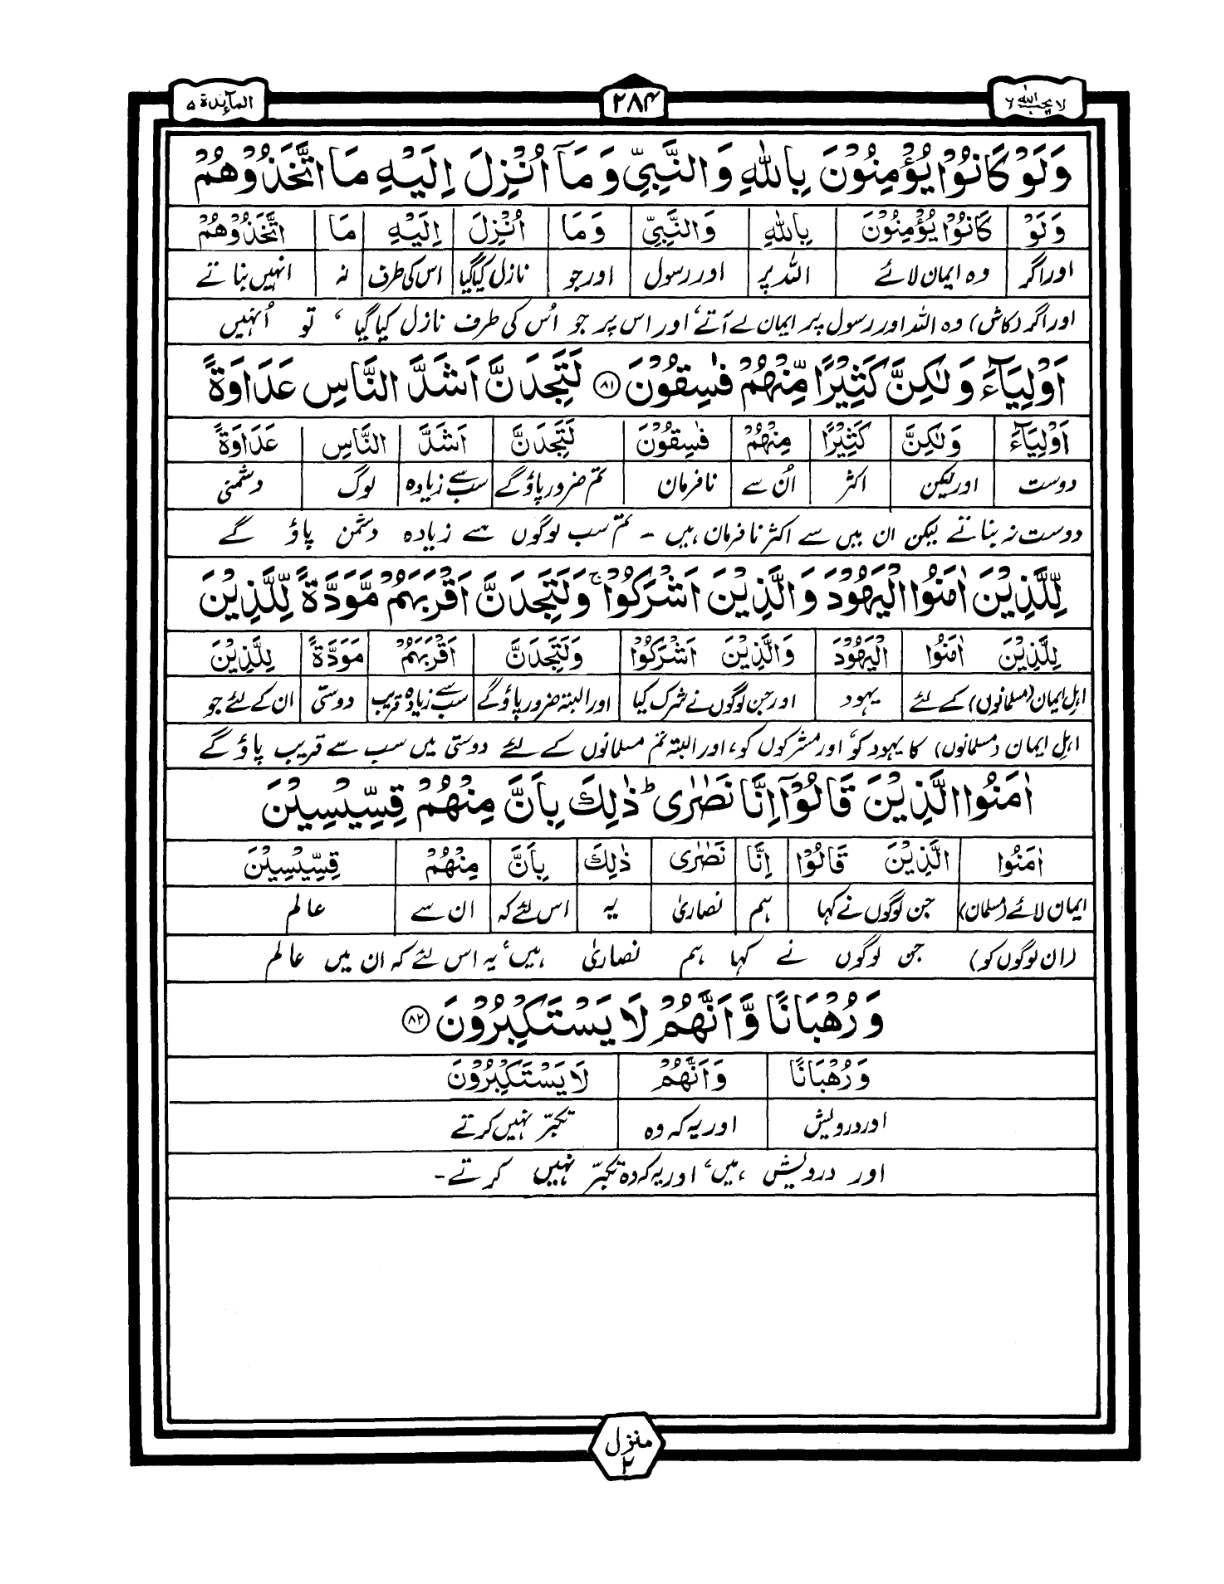 لا يحب الله ٦
٢٨٤
المآئدة ٥
وَلَوْ كَانُوْا يُؤْمِنُوْنَ بِاللّٰهِ وَالنَّبِيِّ وَمَآ اُنْزِلَ اِلَيْهِ مَا اتَّخَذُوْهُمْ
وَلَوْ كَانُوْا يُؤْمِنُوْنَ بِاللّٰهِ وَالنَّبِيِّ وَمَا اُنْزِلَ اِلَيْهِ مَا اتَّخَذُوْهُمْ
اور اگر وہ ایمان لائے اللہ پر اور رسول اور جو نازل کیا گیا اس کی طرف نہ انہیں بناتے
اور اگر (کاش) وہ اللہ اور رسول پر ایمان لے آتے، اور اس پر جو اُس کی طرف نازل کیا گیا ، تو اُنہیں
اَوْلِيَآءَ وَلٰكِنَّ كَثِيْرًا مِّنْهُمْ فٰسِقُوْنَ ﴿٨١﴾ لَتَجِدَنَّ اَشَدَّ النَّاسِ عَدَاوَةً
اَوْلِيَآءَ وَلٰكِنَّ كَثِيْرًا مِنْهُمْ فٰسِقُوْنَ لَتَجِدَنَّ اَشَدَّ النَّاسِ عَدَاوَةً
دوست اور لیکن اکثر اُن سے نافرمان تم ضرور پاؤ گے سب سے زیادہ لوگ دشمنی
دوست نہ بناتے لیکن ان میں سے اکثر نافرمان ہیں - تم سب لوگوں سے زیادہ دشمن پاؤ گے
لِّلَّذِيْنَ اٰمَنُوا الْيَهُوْدَ وَالَّذِيْنَ اَشْرَكُوْا ۚ وَلَتَجِدَنَّ اَقْرَبَهُمْ مَّوَدَّةً لِّلَّذِيْنَ
لِلَّذِيْنَ اٰمَنُوا الْيَهُوْدَ وَالَّذِيْنَ اَشْرَكُوْا وَلَتَجِدَنَّ اَقْرَبَهُمْ مَوَدَّةً لِلَّذِيْنَ
اہلِ ایمان (مسلمانوں) کے لئے یہود اور جن لوگوں نے شرک کیا اور البتہ ضرور پاؤ گے سب سے زیادہ قریب دوستی ان کے لئے جو
اہلِ ایمان (مسلمانوں) کا یہود کو، اور مشرکوں کو، اور البتہ تم مسلمانوں کے لئے دوستی میں سب سے قریب پاؤ گے
اٰمَنُوا الَّذِيْنَ قَالُوْٓا اِنَّا نَصٰرٰى ؕ ذٰلِكَ بِاَنَّ مِنْهُمْ قِسِّيْسِيْنَ
اٰمَنُوا الَّذِيْنَ قَالُوْا اِنَّا نَصٰرٰى ذٰلِكَ بِاَنَّ مِنْهُمْ قِسِّيْسِيْنَ
ایمان لائے (مسلمان) جن لوگوں نے کہا ہم نصاریٰ یہ اس لئے کہ ان سے عالم
(ان لوگوں کو) جن لوگوں نے کہا ہم نصاریٰ ہیں، یہ اس لئے کہ ان میں عالم
وَرُهْبَانًا وَّاَنَّهُمْ لَا يَسْتَكْبِرُوْنَ ﴿٨٢﴾
وَرُهْبَانًا وَاَنَّهُمْ لَا يَسْتَكْبِرُوْنَ
اور درویش اور یہ کہ وہ تکبّر نہیں کرتے
اور درویش ہیں، اور یہ کہ وہ تکبّر نہیں کرتے -
منزل
٢